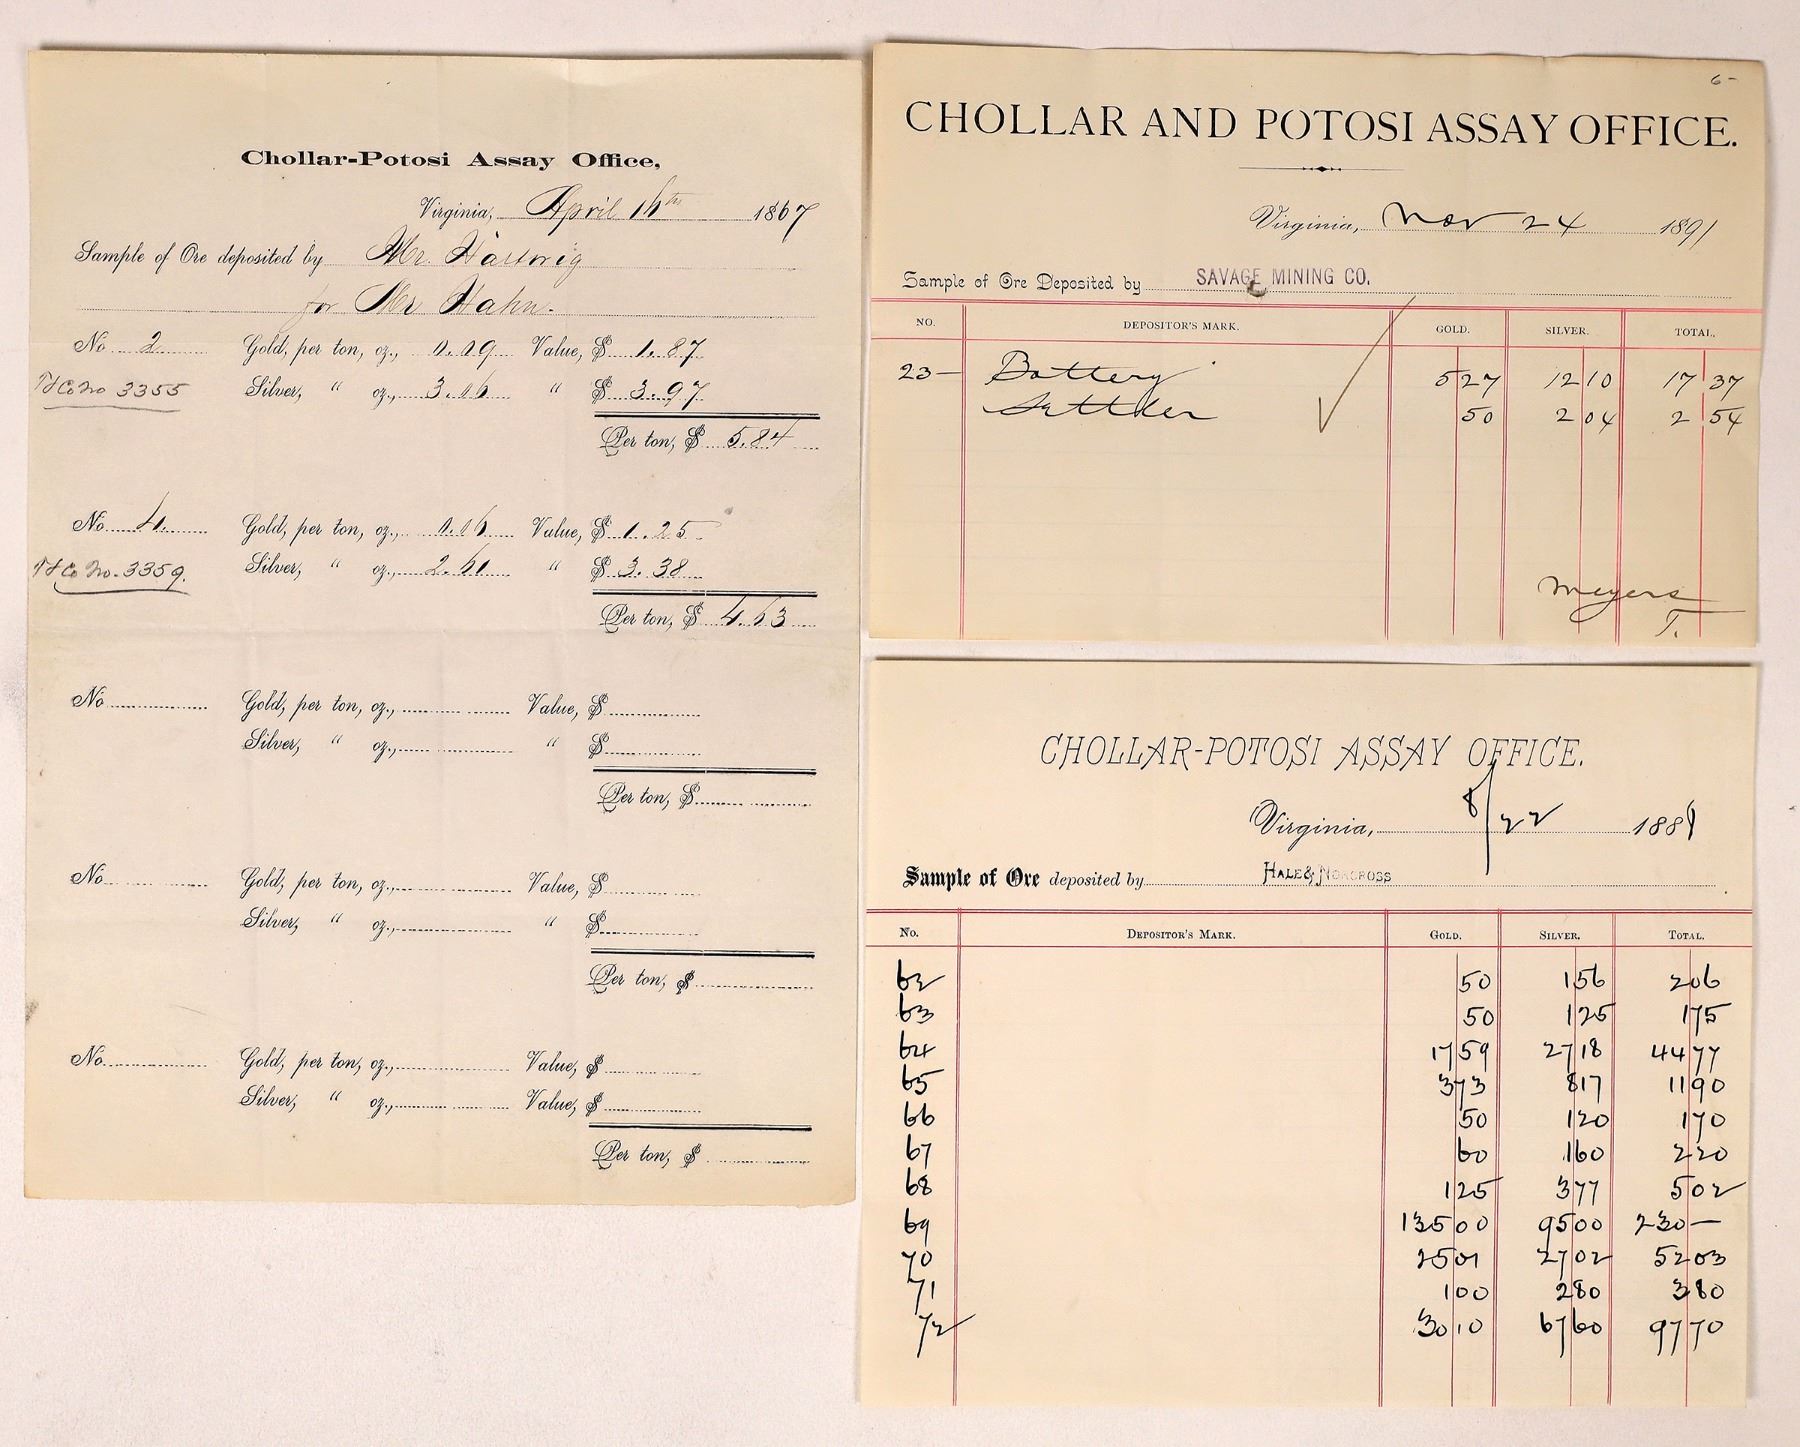 Chollar-Potosi Assay Office,
Virginia, April 16th 1867
Sample of Ore deposited by Mr. Hartwig
for Mr Hahn.
No 2 Gold, per ton, oz., 0.09 Value, $ 1.87
No 3355 Silver, " oz., 3.06 " $ 3.97
Per ton, $ 5.84
No 4. Gold, per ton, oz., 0.06 Value, $ 1.25
Co No. 3359. Silver, " oz., 2.60 " $ 3.38
Per ton, $ 4.63
No Gold, per ton, oz., Value, $
Silver, " oz., " $
Per ton, $
No Gold, per ton, oz., Value, $
Silver, " oz., " $
Per ton, $
No Gold, per ton, oz., Value, $
Silver, " oz., Value, $
Per ton, $
6-
CHOLLAR AND POTOSI ASSAY OFFICE.
Virginia, Nov 24 1891
Sample of Ore Deposited by SAVAGE MINING CO.
NO. DEPOSITOR'S MARK. GOLD. SILVER. TOTAL.
23- Battery 5 27 12 10 17 37
Settler 50 2 04 2 54
Meyers
T.
CHOLLAR-POTOSI ASSAY OFFICE.
Virginia, 8/22 1881
Sample of Ore deposited by HALE & NORCROSS
No. DEPOSITOR'S MARK. GOLD. SILVER. TOTAL.
62 50 1 56 2 06
63 50 1 25 1 75
64 17 59 27 18 44 77
65 3 73 8 17 11 90
66 50 1 20 1 70
67 60 1 60 2 20
68 1 25 3 77 5 02
69 135 00 95 00 230 —
70 25 01 27 02 52 03
71 1 00 2 80 3 80
72 30 10 67 60 97 70